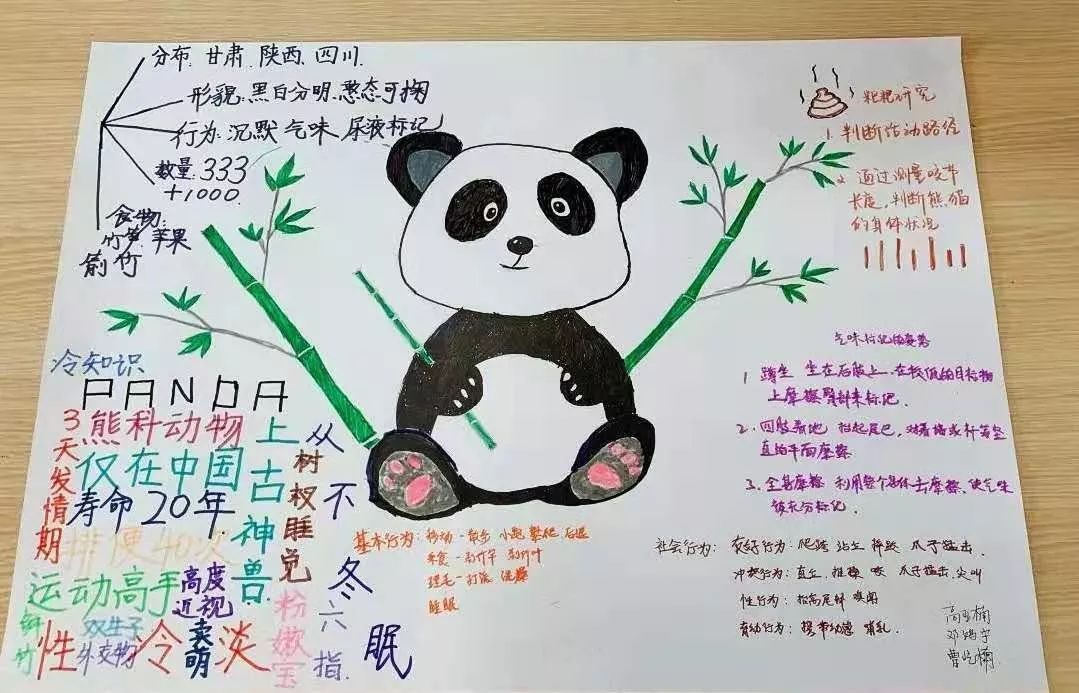 分布: 甘肃、陕西、四川
形貌: 黑白分明、憨态可掬
行为: 沉默 气味、尿液标记
数量: 333
+1000
食物:
竹笋 苹果
箭竹
粑粑研究
1. 判断活动路径
2. 通过测量咬节
长度,判断熊猫
的身体状况
冷知识
PANDA
3天发情期
熊科动物
仅在中国
寿命20年
排便40次
运动高手
高度
近视
上古神兽
从不冬眠
树杈睡觉
粉嫩宝
六指
鲜竹
性冷淡
双生子
外交物
卖萌
气味标记的姿势
1 蹲坐 坐在后腿上,在较低的目标物
上摩擦臀部来标记.
2. 四肢着地 抬起尾巴,对着墙或竹等垂
直的平面摩擦
3. 全身摩擦 利用整个身体去摩擦、使气味
被充分标记.
基本行为: 移动—散步 小跑 攀爬 后退
采食—
理毛—打滚
睡眠
社会行为: 友好行为: 爬跨 站立 摔跤 爪子猛击.
冲突行为: 直立 推搡 咬 爪子猛击、尖叫
性行为: 抬高尾部 嗅闻
育幼行为: 携带幼崽 哺乳.